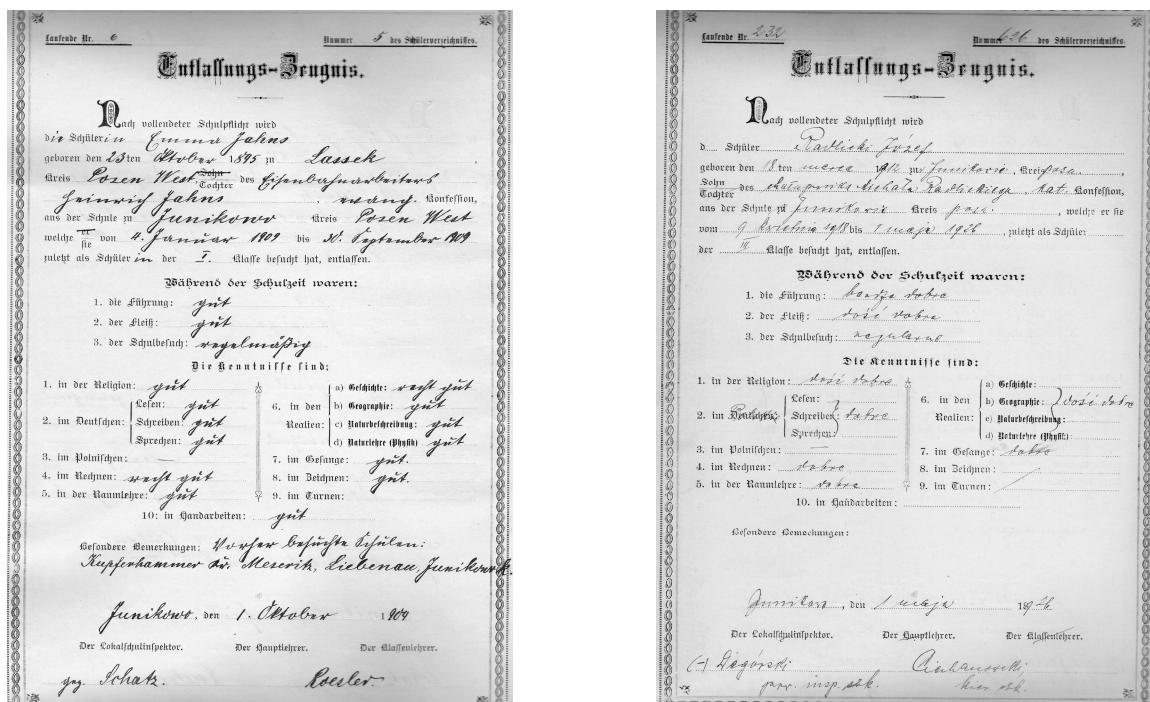 Laufende Nr. 6 Nummer 5 des Schülerverzeichnisses.
Entlassungs-Zeugnis.
Nach vollendeter Schulpflicht wird
die Schülerin Emma Jahns
geboren den 23ten Oktober 1895 zu Lassek
Kreis Posen West Sohn Tochter des Eisenbahnarbeiters
Heinrich Jahns, evang. Konfession,
aus der Schule zu Junikowo Kreis Posen West
welche er sie von 4. Januar 1909 bis 30. September 1909
zuletzt als Schülerin der I. Klasse besucht hat, entlassen.
Während der Schulzeit waren:
1. die Führung: gut
2. der Fleiß: gut
3. der Schulbesuch: regelmäßig
Die Kenntnisse sind:
1. in der Religion: gut
2. im Deutschen:
Lesen: gut
Schreiben: gut
Sprechen: gut
3. im Polnischen: —
4. im Rechnen: recht gut
5. in der Raumlehre: gut
6. in den Realien:
a) Geschichte: recht gut
b) Geographie: gut
c) Naturbeschreibung: gut
d) Naturlehre (Physik): gut
7. im Gesange: gut.
8. im Zeichnen: gut.
9. im Turnen:
10: in Handarbeiten: gut
Besondere Bemerkungen: Vorher besuchte Schulen:
Kupferhammer Kr. Meseritz, Liebenau, Junikowo
Junikowo, den 1. Oktober 1909
Der Lokalschulinspektor. Der Hauptlehrer. Der Klassenlehrer.
gez. Schatz. Roesler.
Laufende Nr. 232 Nummer 626 des Schülerverzeichnisses.
Entlassungs-Zeugnis.
Nach vollendeter Schulpflicht wird
d Schüler Radlicki Józef
geboren den 18ten marca 1912 zu Junikowie, Kreis pozn.
Sohn Tochter des Michała Radlickiego, kat. Konfession,
aus der Schule zu Junikowie Kreis pozn., welche er sie
vom 9 kwietnia 1918 bis 1 maja 1926, zuletzt als Schüler
der III. Klasse besucht hat, entlassen.
Während der Schulzeit waren:
1. die Führung: bardzo dobre
2. der Fleiß: dość dobre
3. der Schulbesuch: regularne
Die Kenntnisse sind:
1. in der Religion: dość dobre
2. im Deutschen:
Lesen:
Schreiben: dobre
Sprechen:
3. im Polnischen: —
4. im Rechnen: dobre
5. in der Raumlehre: dobre
6. in den Realien:
a) Geschichte:
b) Geographie: dość dobre
c) Naturbeschreibung:
d) Naturlehre (Physik):
7. im Gesange: dobre
8. im Zeichnen:
9. im Turnen:
10. in Handarbeiten:
Besondere Bemerkungen:
Junikowo, den 1 maja 1926
Der Lokalschulinspektor. Der Hauptlehrer. Der Klassenlehrer.
(-) Degórski Ciechanowski
insp. szk. kier. szk.